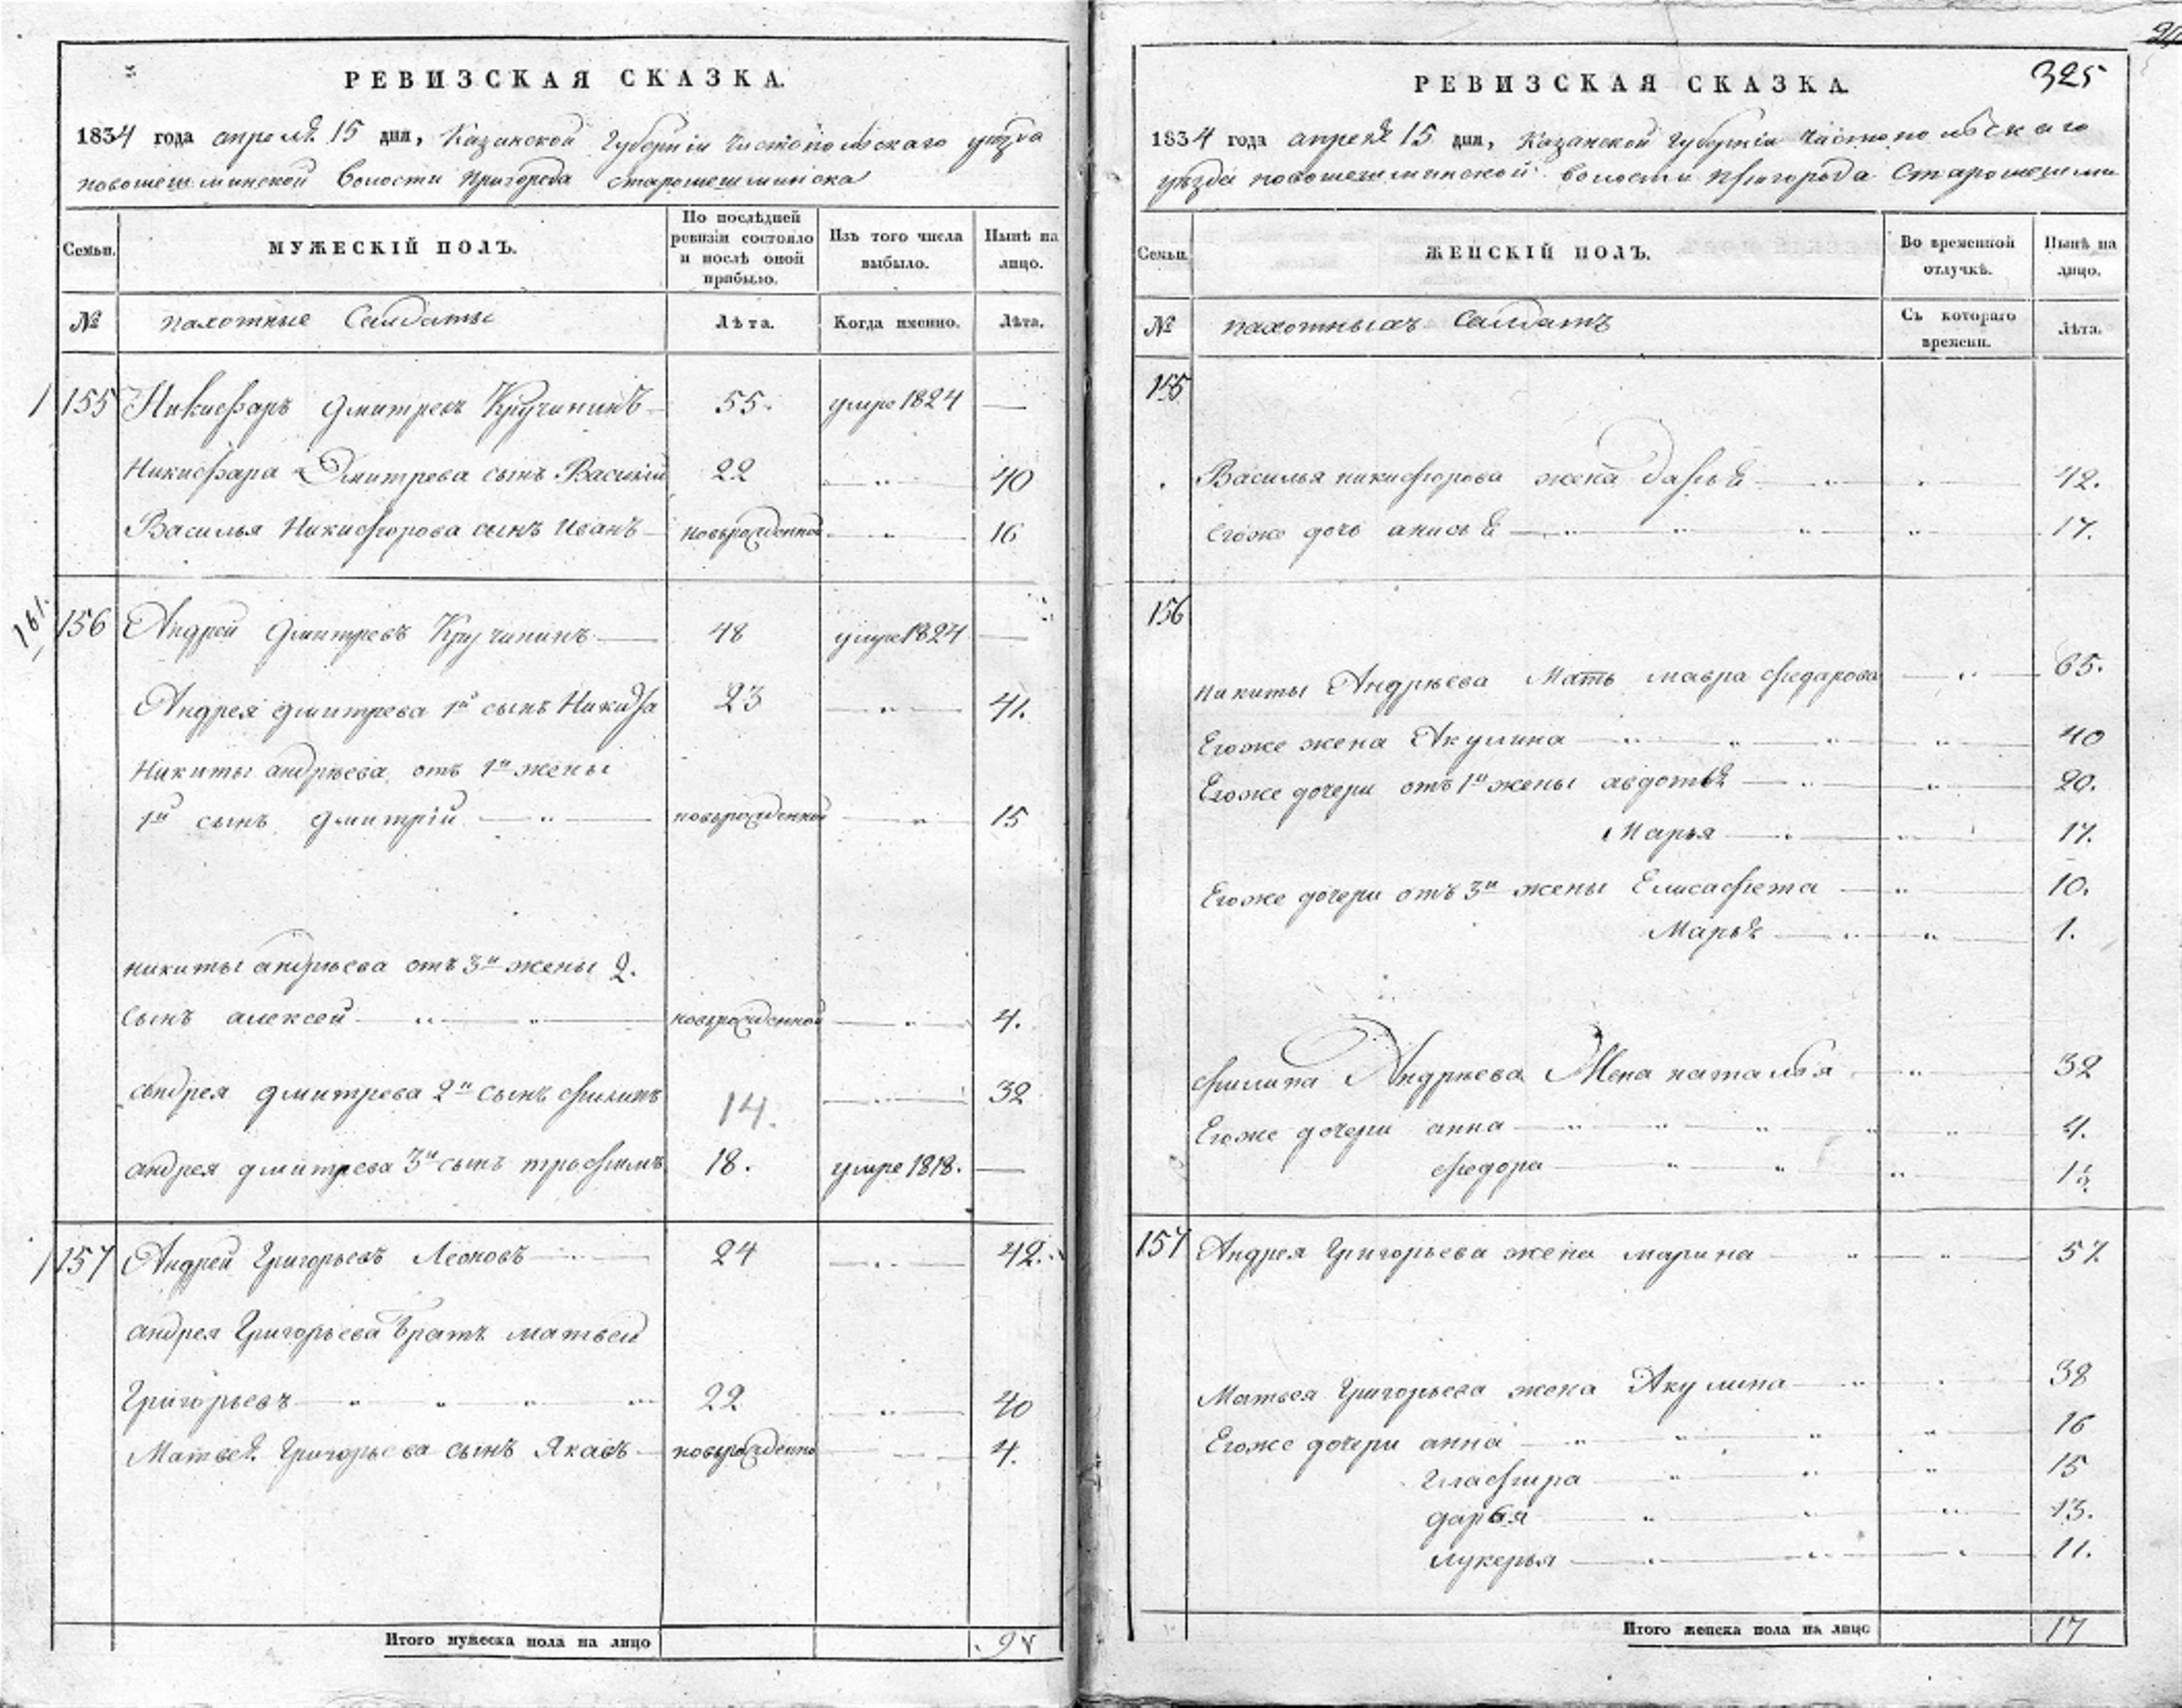 РЕВИЗСКАЯ СКАЗКА.
1834 года апреля 15 дня, Казанской Губернии Чистопольскаго уезда
новошешминской волости пригорода старошешминска
Семьи.
МУЖЕСКІЙ ПОЛЪ.
По послѣдней ревизіи состояло и послѣ оной прибыло.
Изъ того числа выбыло.
Нынѣ на лицо.
№
пахотные Салдаты
Лѣта.
Когда именно.
Лѣта.
155 Никифаръ Дмитревъ Кручининъ 55. умре 1824 —
Никифара Дмитрева сынъ Василий 22 40
Василья Никифорова сынъ Иванъ новорожденной 16
156 Андрей Дмитревъ Кручининъ 48 умре 1824 —
Андрея Дмитрева 1й сынъ Никита 23 41.
Никиты андрѣева отъ 1й жены
1й сынъ Дмитрій новорожденной 15
никиты андрѣева отъ 3й жены 2.
сынъ алексей новорожденной 4.
андрея дмитрева 2й сынъ филипъ 14. 32
андрея дмитрева 3й сынъ трофимъ 18. умре 1818. —
157 Андрей Григорьевъ Леоновъ 24 42.
андрея Григорьева братъ матвей
Григорьевъ 22 40
Матвея Григорьева сынъ Якавъ новорожденно 4.
Итого мужеска пола на лицо 9
325
РЕВИЗСКАЯ СКАЗКА.
1834 года апреля 15 дня, Казанской Губернии Чистопольскаго
уезда новошешминской волости пригорода Старошешми
Семьи.
ЖЕНСКІЙ ПОЛЪ.
Во временной отлучкѣ.
Нынѣ на лицо.
№
пахотныхъ Салдатъ
Съ котораго времени.
Лѣта.
155
Василья никифорова жена дарья 42.
Егоже дочь анисья 17.
156
никиты Андрѣева Мать мавра федарова 65.
Егоже жена Акулина 40
Егоже дочери отъ 1й жены авдотья 20.
Марья 17.
Егоже дочери отъ 3й жены Елисафета 10.
Марья 1.
филипа Андрѣева Жена наталья 32
Егоже дочери анна 4.
федора
157 Андрея Григорьева жена марина 57.
Матвея Григорьева жена Акулина 38
Егоже дочери анна 16
глафира 15
дарья 13.
лукерья 11.
Итого женска пола на лицо 17